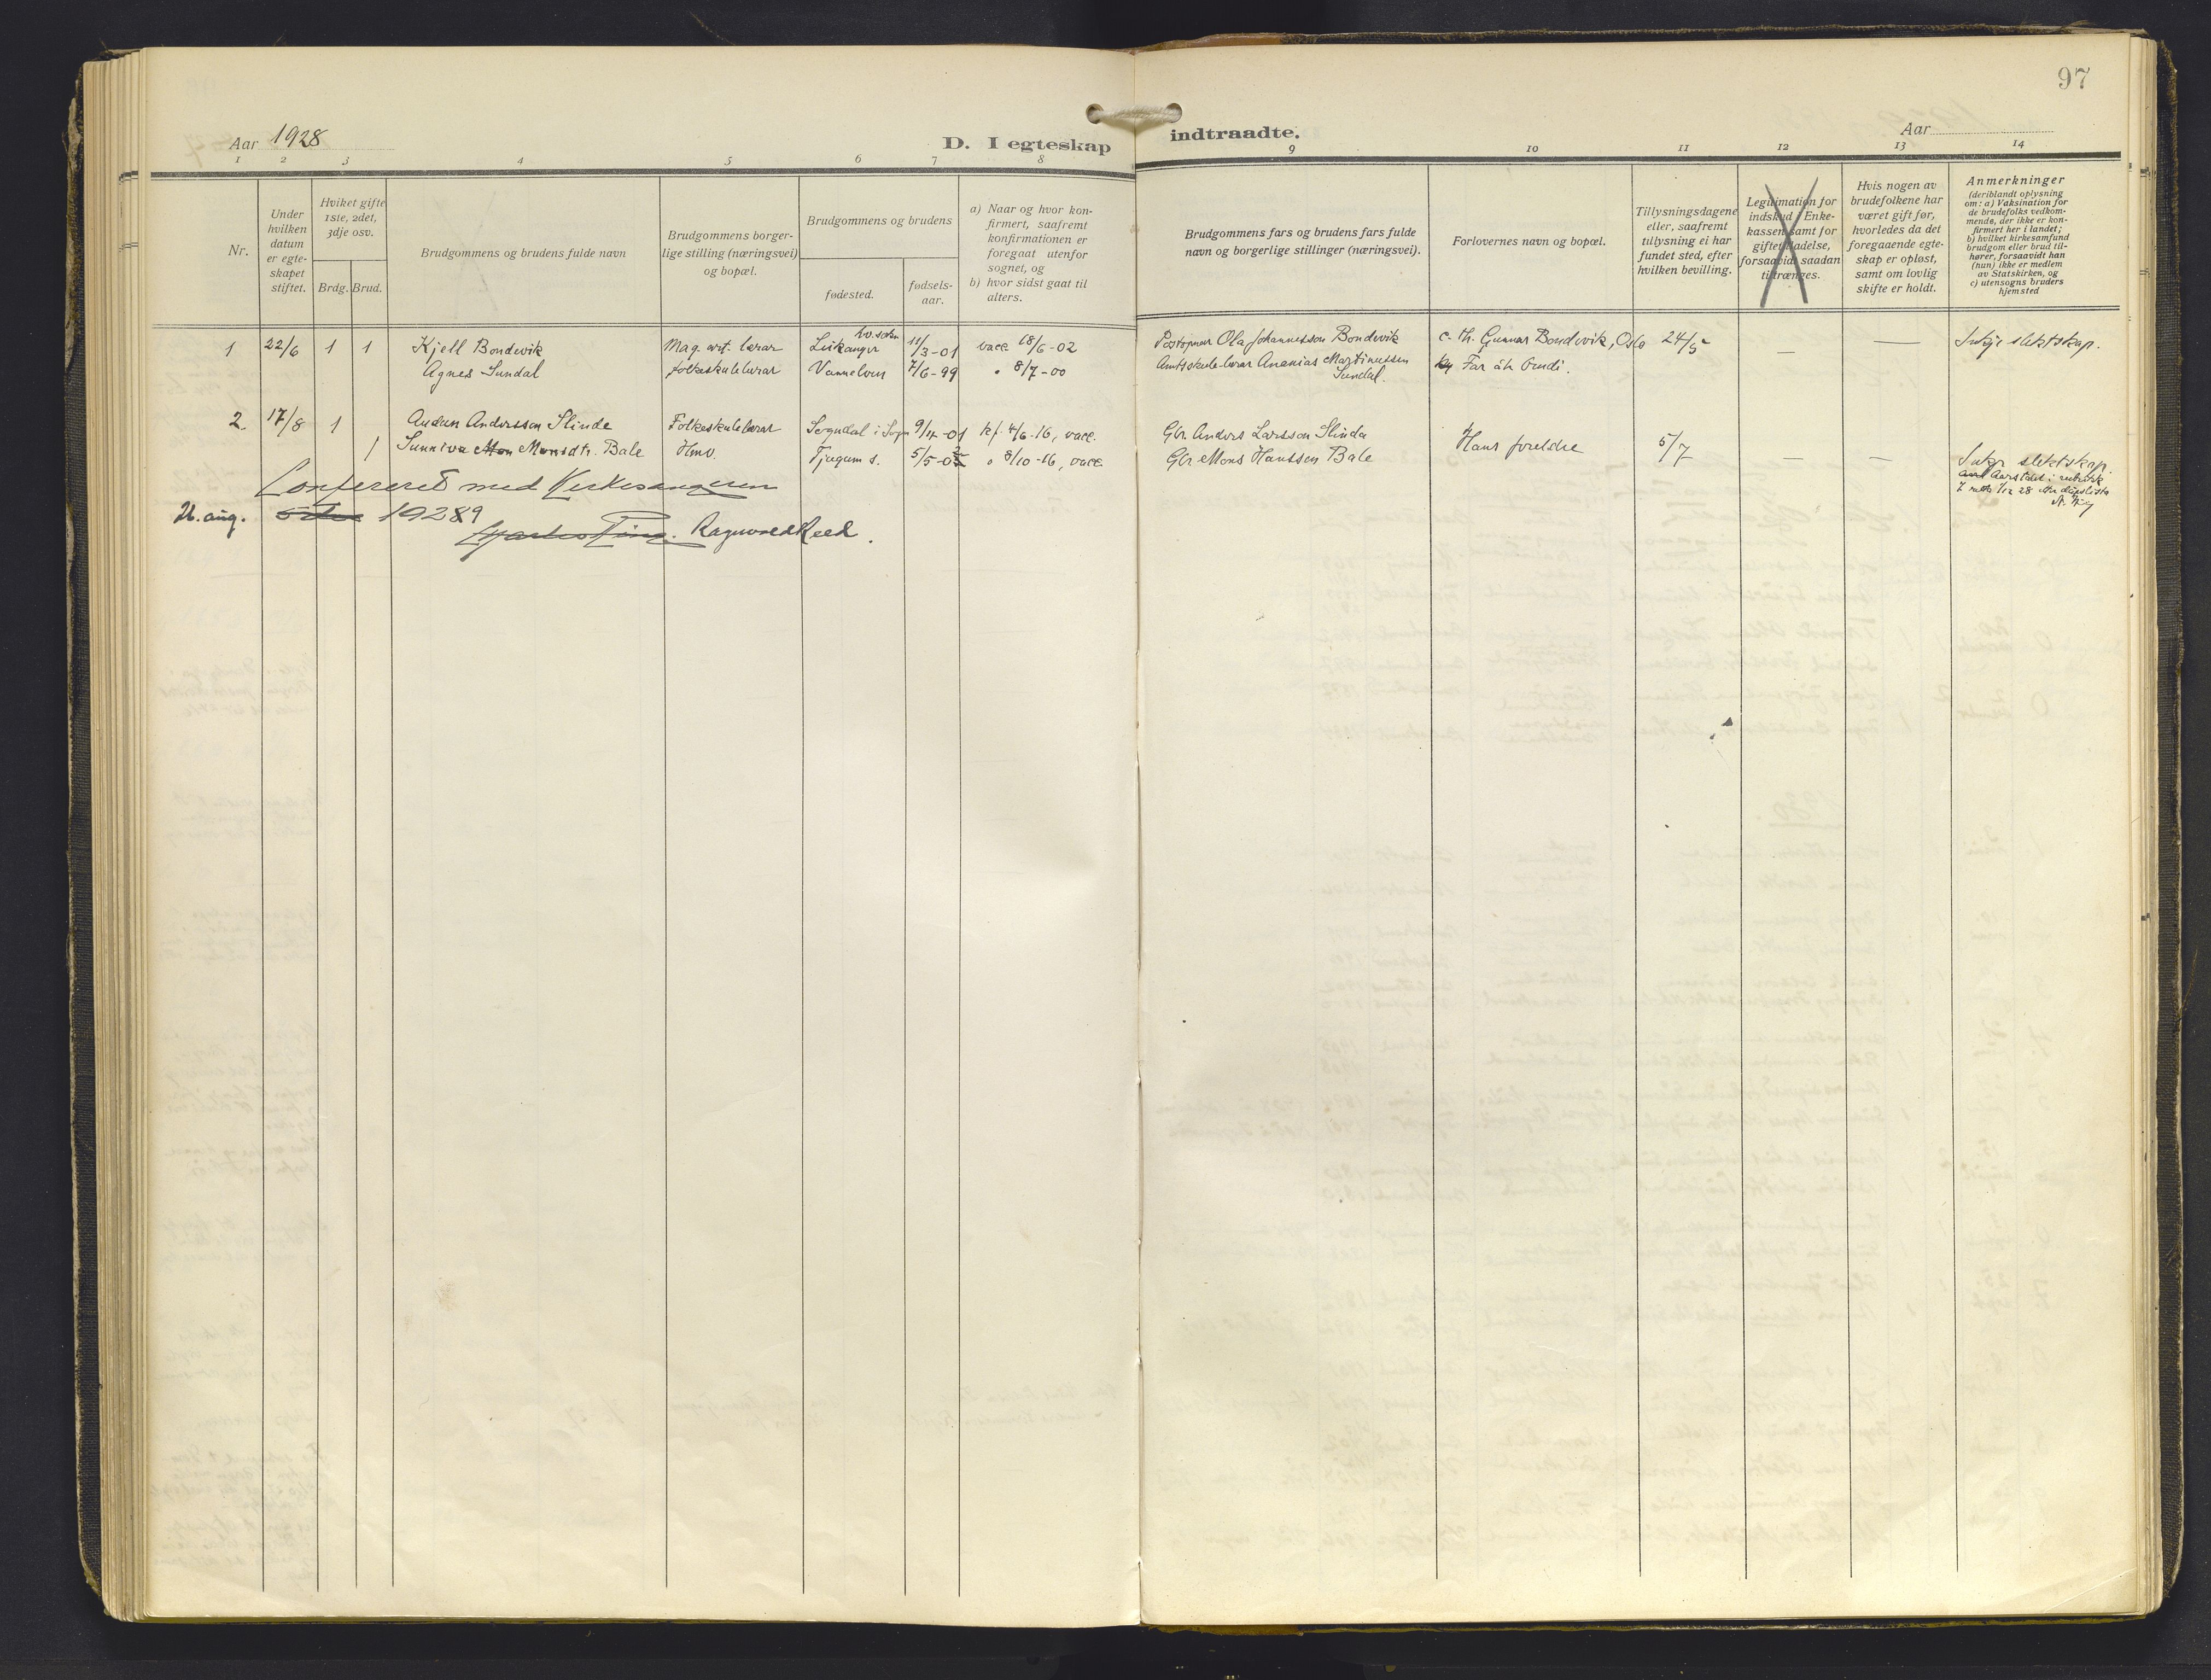 97
Aar 1928 D. I egteskap indtraadte. Aar
1 2 3 4 5 6 7 8 9 10 11 12 13 14
Nr.
Under hvilken datum er egteskapet stiftet.
Hviket gifte 1ste, 2det, 3dje osv.
Brdg. Brud.
Brudgommens og brudens fulde navn
Brudgommens borgerlige stilling (næringsvei) og bopæl.
Brudgommens og brudens
fødested. fødselsaar.
a) Naar og hvor konfirmert, saafremt konfirmationen er foregaat utenfor sognet, og
b) hvor sidst gaat til alters.
Brudgommens fars og brudens fars fulde navn og borgerlige stillinger (næringsvei).
Forlovernes navn og bopæl.
Tillysningsdagene eller, saafremt tillysning ei har fundet sted, efter hvilken bevilling.
Legitimation for indskud i Enkekassen samt for giftetilladelse, forsaavidt saadan tiltrænges.
Hvis nogen av brudefolkene har været gift før, hvorledes da det foregaaende egteskap er opløst, samt om lovlig skifte er holdt.
Anmerkninger
(deriblandt oplysning om: a) Vaksination for de brudefolks vedkommende, der ikke er konfirmert her i landet; b) hvilket kirkesamfund brudgom eller brud tilhører, forsaavidt han (hun) ikke er medlem av Statskirken, og c) utensogns bruders hjemsted
1 22/6 1 1 Kjell Bondevik Mag. art. lærar Leikanger 11/3-01 vacc. 18/6-02 Postopnar Ola Johannesson Bondevik c. th. Gunnar Bondevik, Oslo 24/5 — — Inkje slektskap.
Agnes Sundal folkeskulelærar 7/6-99 " 8/7-00 Amtsskule-lærar Ananias Martinussen Sundal. Far åt brudi.
2. 17/8 1 Audun Andersson Slinde Folkeskulelærar Sogndal i Sogn 9/12-01 kf. 4/6-16, vacc. Gbr. Anders Larsson Slinde Hans foreldre 5/7 — —
1 Sunniva Monsdtr. Bale Hmv. Tjugum s. 5/5-02 " 8/10-16, vacc. Gbr. Mons Hanssen Bale Inkje slektskap.
Aarstalet i rubrikk
7 retta 1/12 28 etter dåpslista
Confereret med Kirkesangeren
26. aug. 1929
Ragnvald Reed.